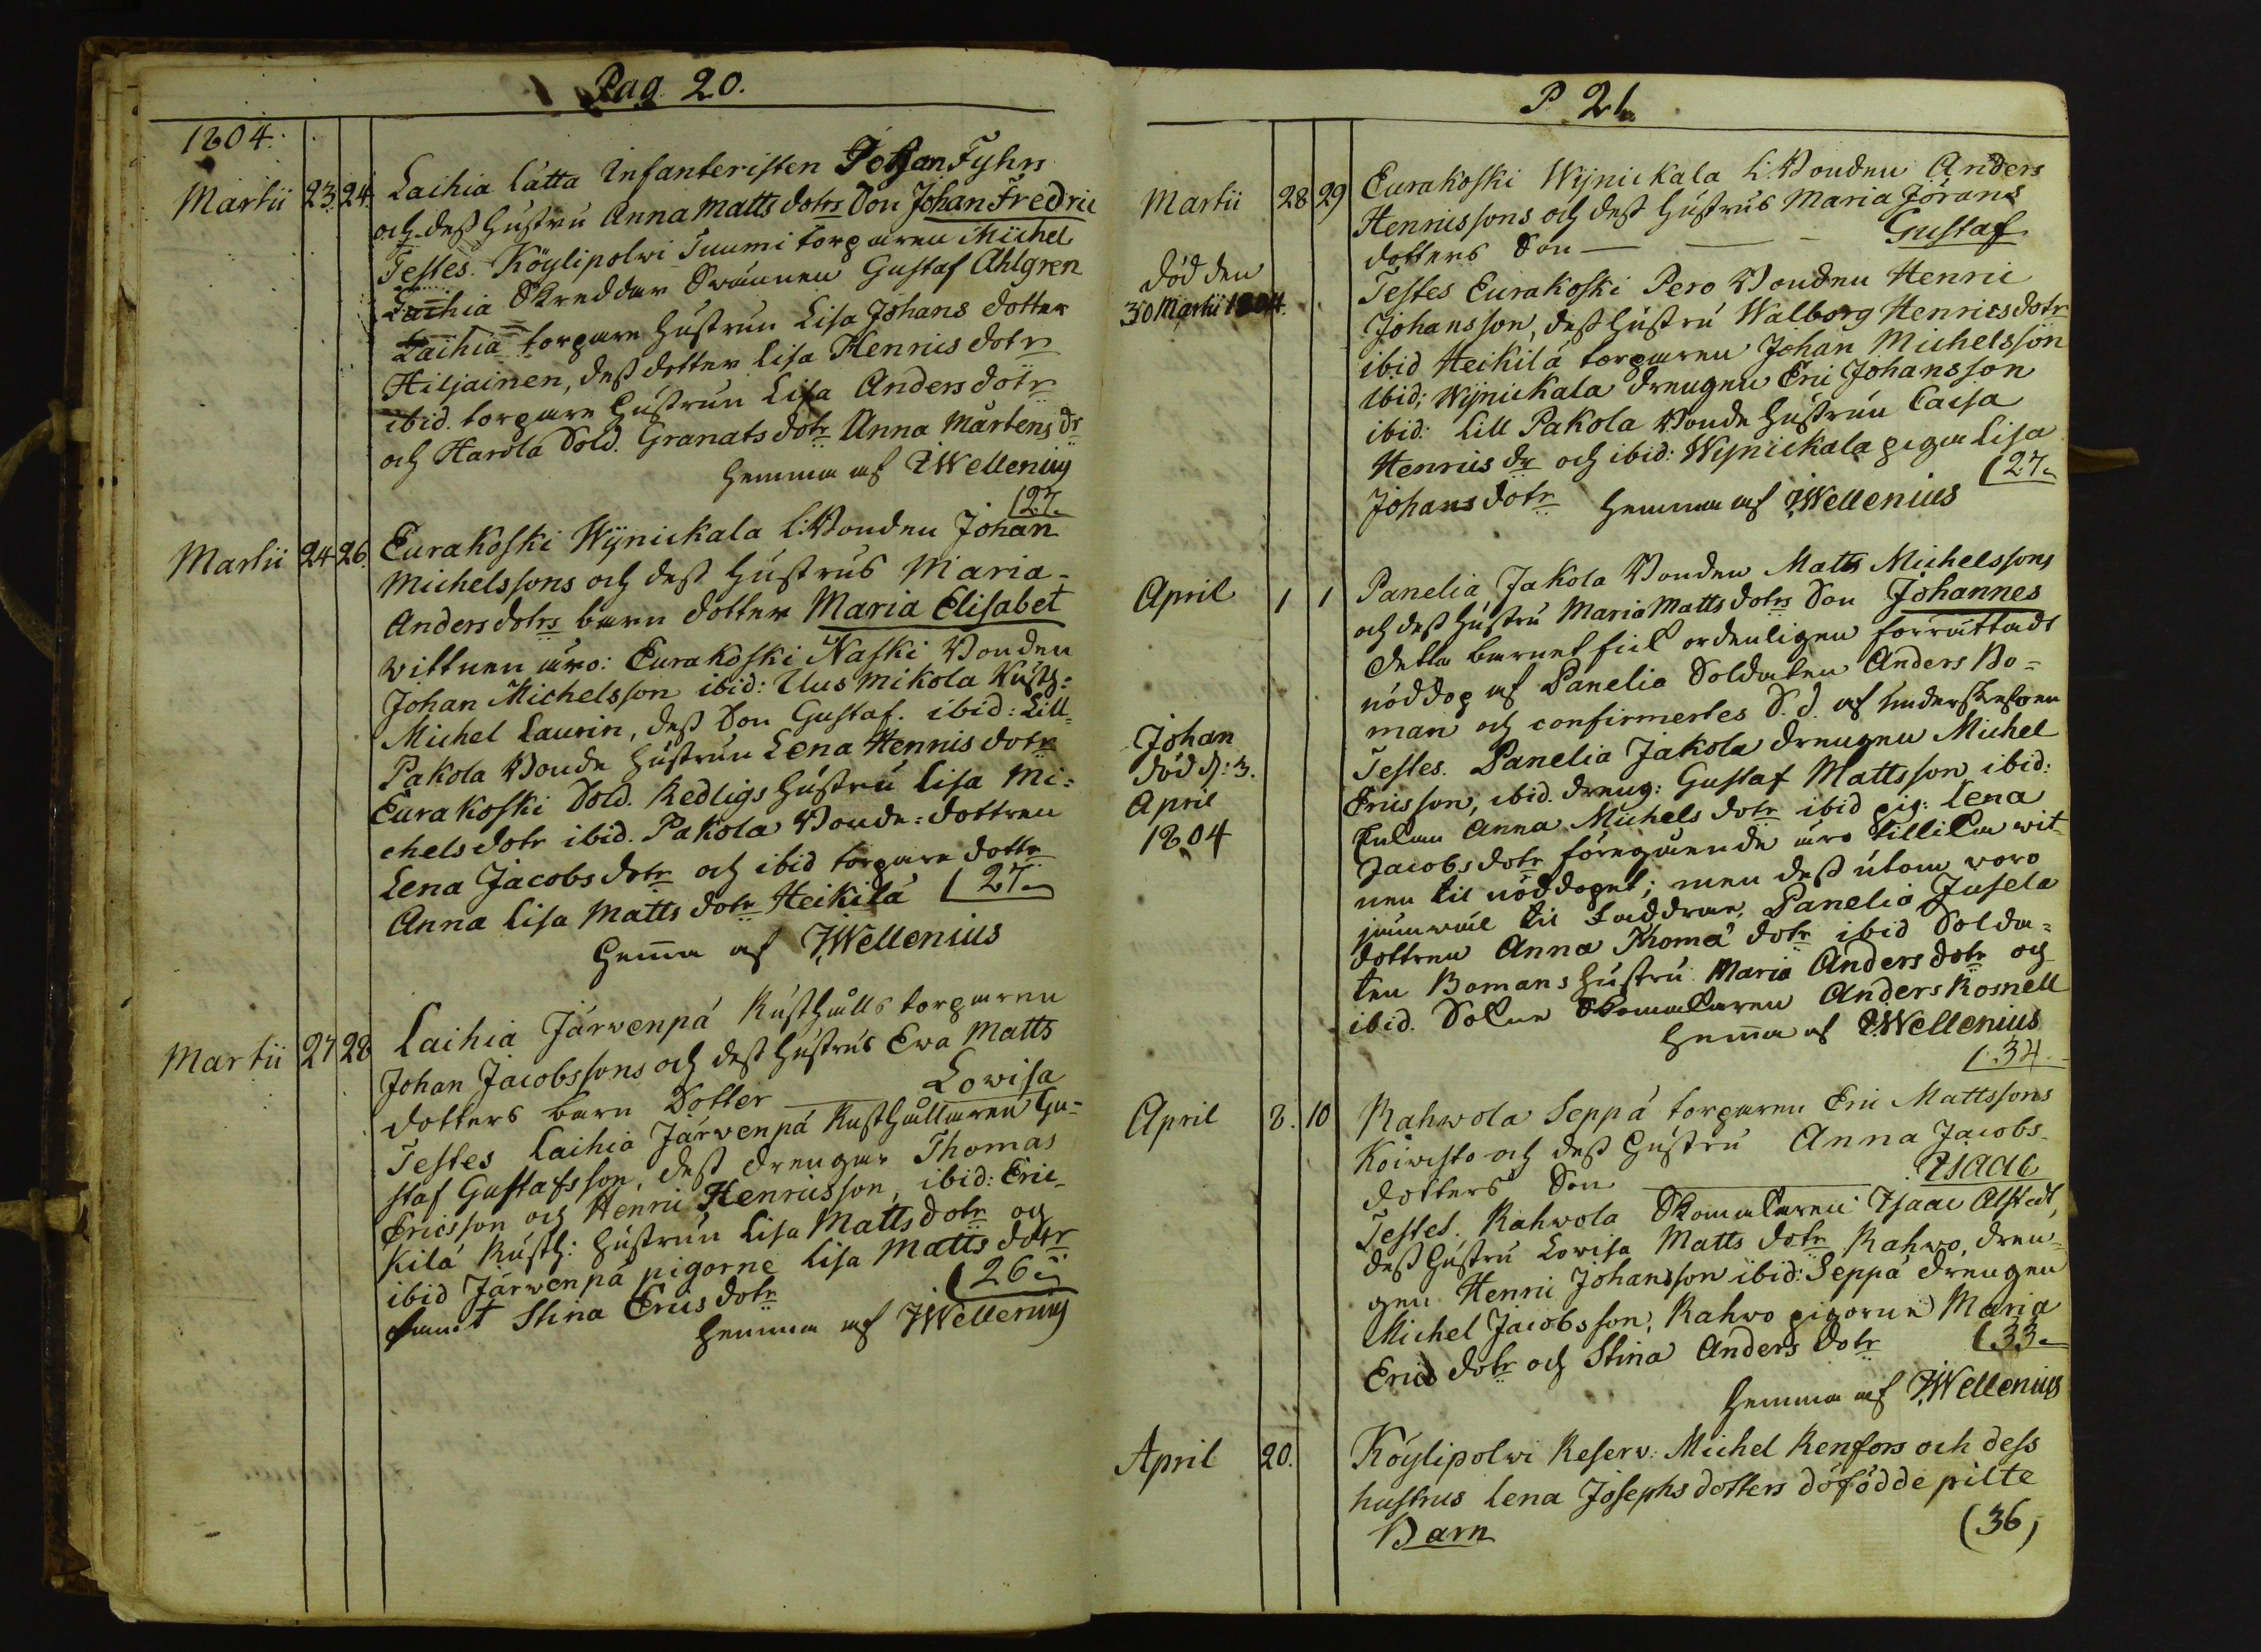 Pag. 20.
1804.
Martii 23. 24. Laihia lätta Infanteristen Johan Fyhrs
och dess hustru Anna Matts dotrs Son Johan Fredric
Testes. Köylipolwi Tuumi torparen Michel
Laihia Skreddar Svännen Gustaf Ahlgren
Laihia torpare hustrun Lisa Johans dotter
Hiljainen, dess dotter Lisa Henrics dotr
ibid. torpare hustrun Lisa Anders dotr
och Harola Sold. Granats dotr Anna Mårtens dr
hemma af IWellenius
(27.
Martii 24 26. Eurakoski Wijnickala l: Bonden Johan
Michelssons och dess hustrus Maria
Anders dotrs barn dotter Maria Elisabet
Wittnen äro: Eurakoski Naski Bonden
Johan Michelsson ibid: Uusmikola Rusth:
Michel Laurin, dess Son Gustaf. ibid: Lill
Pakola Bonde hustrun Lena Henrics dotr
Eurakoski Sold. Redligs hustru Lisa Mi-
chels dotr ibid. Pakola Bonde-dottren
Lena Jacobs dotr och ibid torpare dottr
Anna Lisa Matts dotr Heikilä (27.
hemma af IWellenius
Martii 27 28 Laihia Järwenpä Rusthålls torparen
Johan Jacobssons och dess hustrus Ewa Matts
dotters barn Dotter Lowisa
Testes Laihia Järwenpä Rusthållaren Gu-
staf Gustafsson, dess drengar Thomas
Ericsson och Henric Henricsson, ibid: Eric-
kilä Rusth: hustrun Lisa Matts dotr och
ibid Järwenpä pigorne Lisa Matts dotr
samt Stina Erics dotr (26.
hemma af IWellenius
P 21.
Martii 28 29 Eurakoski Wijnickala l: Bonden Anders
Henricssons och dess hustrus Maria Jörans
dotters Son — — Gustaf
död den
30 Martii 1804.
Testes Eurakoski Pero Bonden Henric
Johansson, dess hustru Walborg Henrics dotr
ibid Heikilä torparen Johan Michelsson
ibid; Wijnickala drengen Eric Johansson
ibid: Lill Pakola Bonde hustrun Caisa
Henrics dr och ibid: Wijnickala pigan Lisa
Johans dotr hemma af IWellenius (27.
April 1 1 Panelia Jakola Bonden Matts Michelssons
och dess hustru Maria Matts dotrs Son Johannes
detta barnet fick ordenligen förrättadt
nöddop af Panelia Soldaten Anders Bo-
man och confirmertes S. d. af
Johan
död d: 3.
April
1804
Testes. Panelia Jakola drengen Michel
Ericsson, ibid. dreng: Gustaf Mattsson ibid:
Enkan Anna Michels dotr ibid pig: Lena
Jacobs dotr föregående äro tillika wit-
nen til nöddopet; men dess utom woro
jämwäl til faddrar, Panelia Jusela
dottren Anna Thomä dotr ibid Solda-
ten Bomans hustru Maria Anders dotr och
ibid. Sokne Skomakaren Anders Rosnell
hemma af IWellenius
(34.
April 8. 10 Rahwola Seppä torparen Eric Mattssons
Koiwisto och dess hustru Anna Jacobs
dotters Son Isaac
Testes. Rahwola Skomakaren Isaac Alstedt,
dess hustru Lowisa Matts dotr Rahwo, dren-
gen Henric Johansson ibid: Seppä drengen
Michel Jacobsson, Rahwo pigorne Maria
Erics dotr och Stina Anders dotr (33.
hemma af IWellenius
April 20. Köylipolwi Reserv: Michel Renfors och dess
hustrus Lena Josephs dotters döfödde pilte
Barn (36,